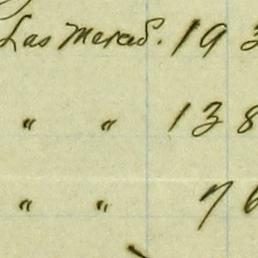 Las Merced. 193
" " 138
" " 76